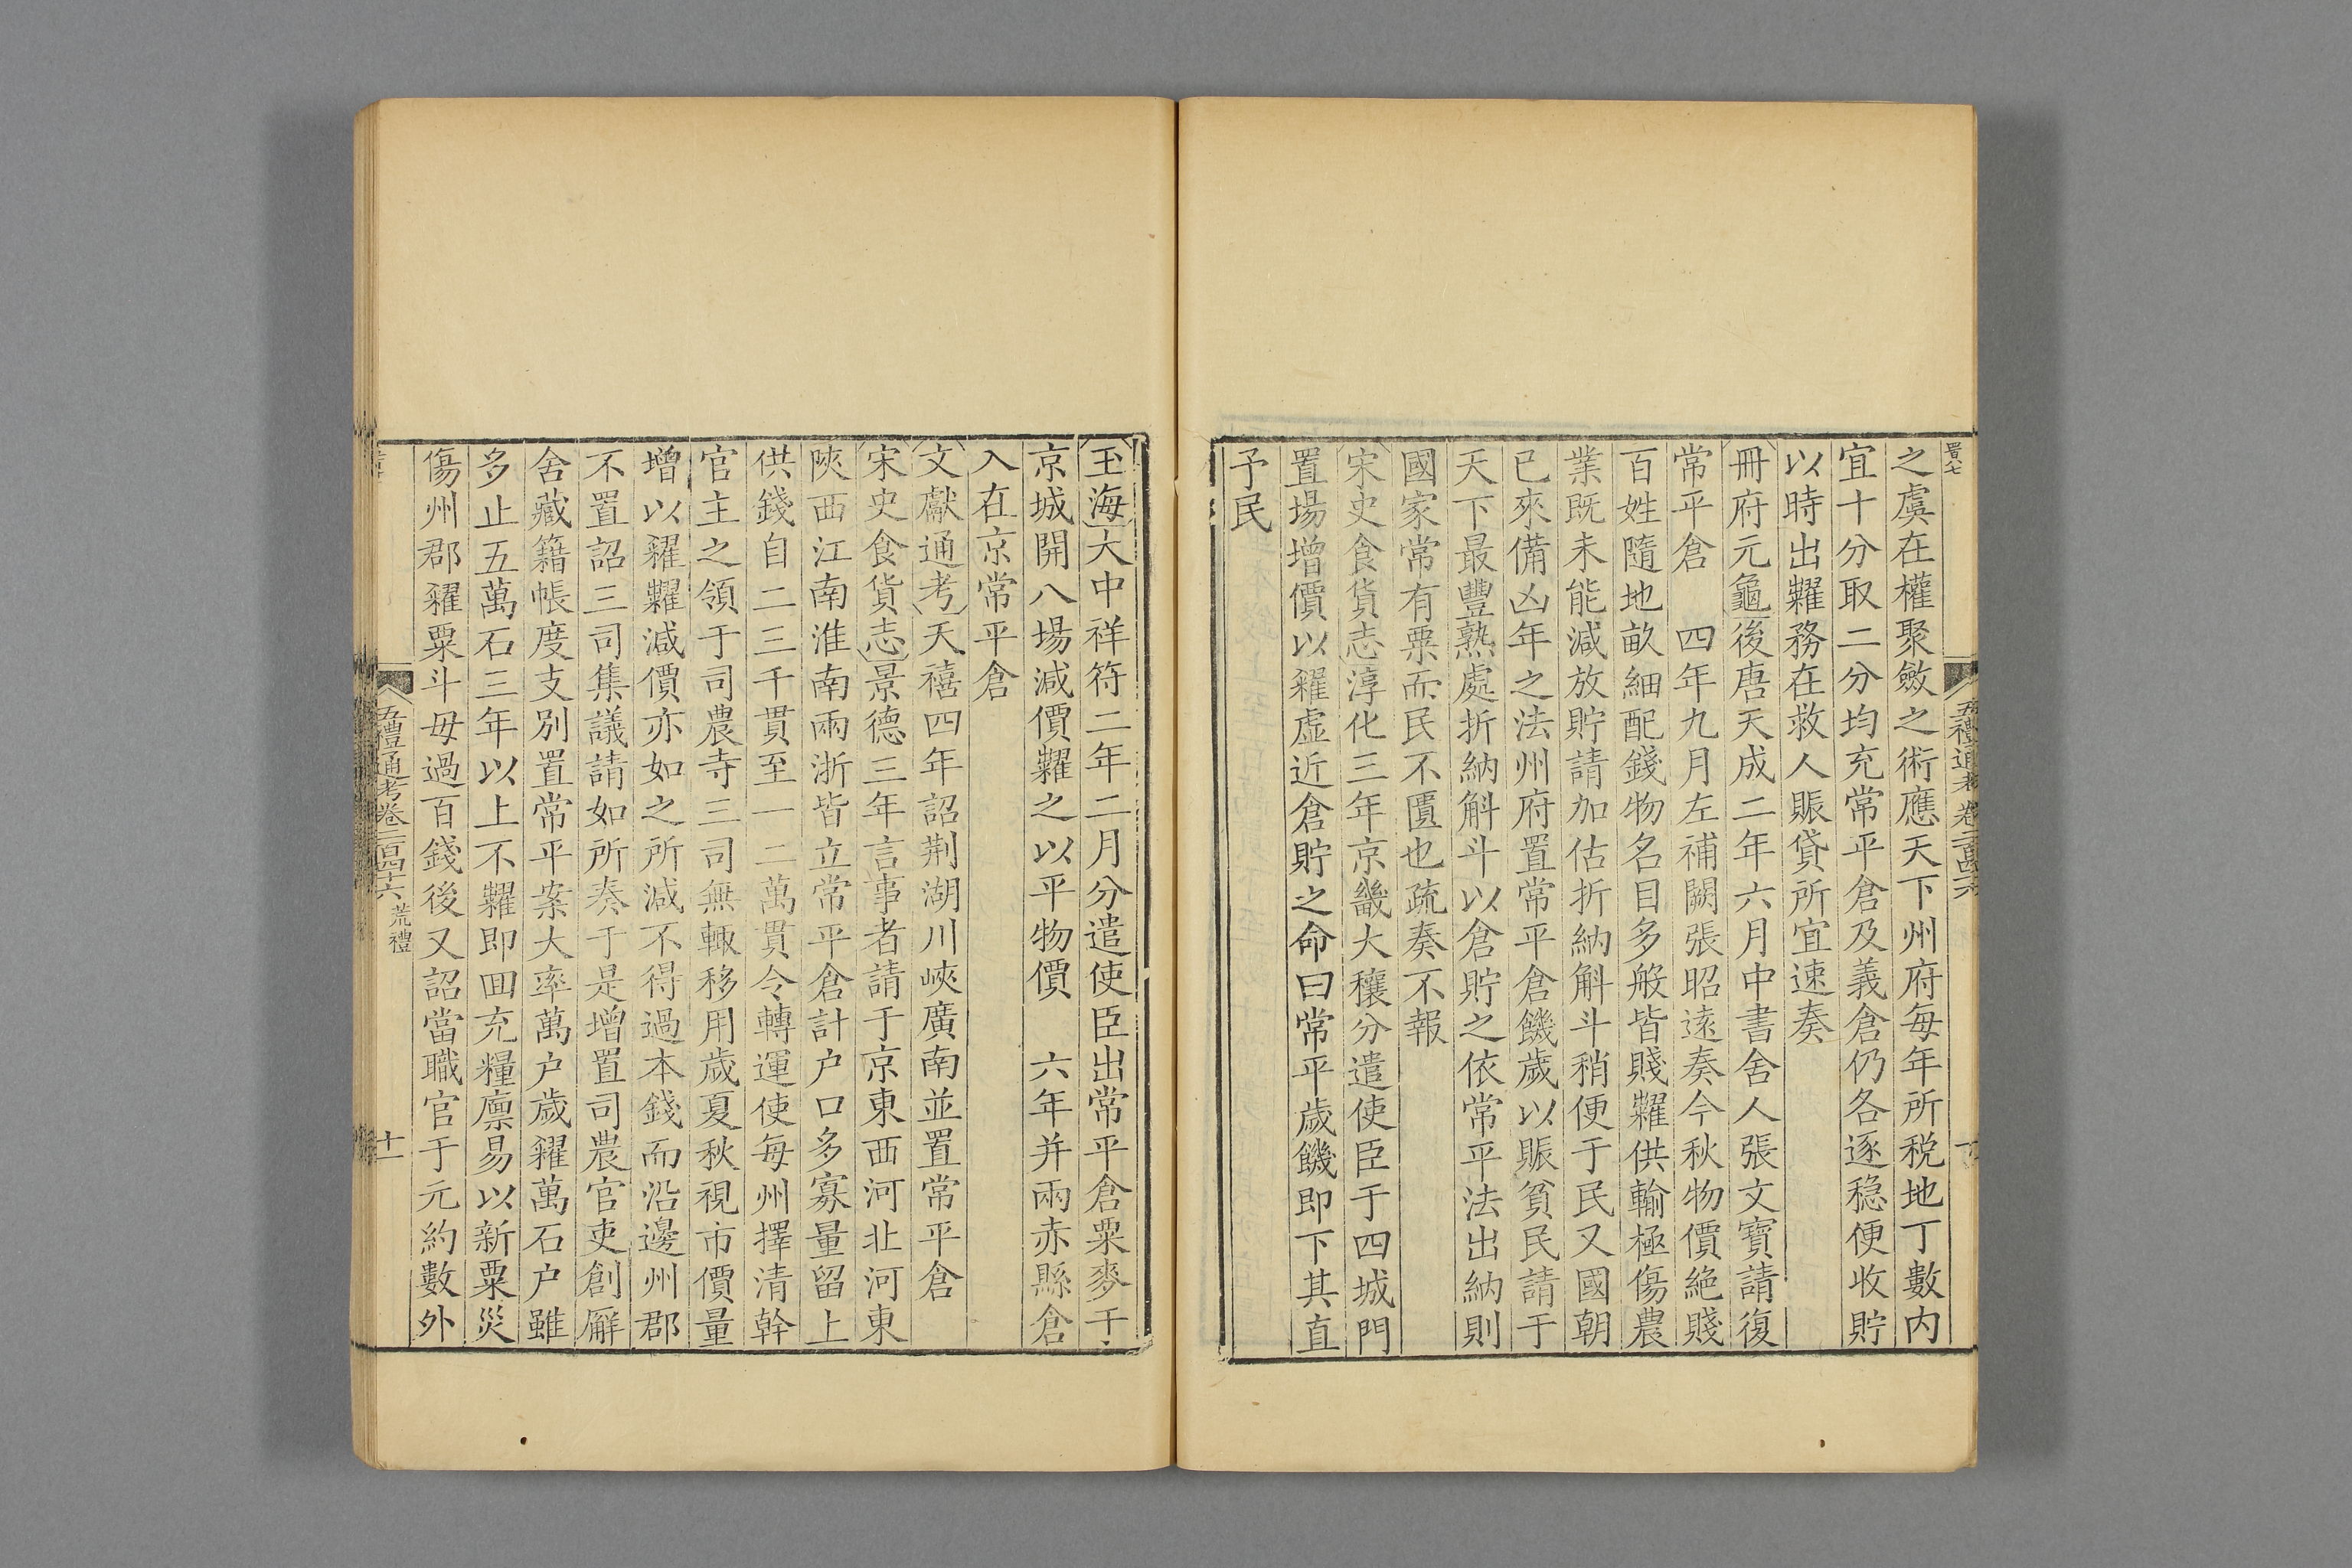 之虞在權聚斂之術應天下州府每年所税地丁數内
宜十分取二分均充常平倉及義倉仍各逐穏便收貯
以時出糶務在救人賑貸所宜速奏
冊府元龜後唐天成二年六月中書舍人張文寶請復
常平倉　四年九月左補闕張昭遠奏今秋物價絶賤
百姓隨地畝細配錢物名目多般皆賤糶供輸極傷農
業既未能減放貯請加估折納斛斗稍便于民又國朝
已來備凶年之法州府置常平倉饑歲以賑貧民請于
天下最豐熟處折納斛斗以倉貯之依常平法出納則
國家常有粟而民不匱也疏奏不報
宋史食貨志淳化三年京畿大穰分遣使臣于四城門
置場增價以糴虛近倉貯之命曰常平歲饑即下其直
予民
玉海大中祥符二年二月分遣使臣出常平倉粟麥于
京城開八場減價糶之以平物價　六年并兩赤縣倉
入在京常平倉
文獻通考天禧四年詔荆湖川峽廣南並置常平倉
宋史食貨志景德三年言事者請于京東西河北河東
陜西江南淮南兩浙皆立常平倉計户口多寡量留上
供錢自二三千貫至一二萬貫令轉運使每州擇清幹
官主之領于司農寺三司無輒移用歲夏秋視市價量
增以糴糶減價亦如之所減不得過本錢而沿邊州郡
不置詔三司集議請如所奏于是增置司農官吏創廨
舍藏籍帳度支別置常平案大率萬户歲糴萬石户雖
多止五萬石三年以上不糶即回充糧廩易以新粟災
傷州郡糴粟斗毋過百錢後又詔當職官于元約數外
五禮通考卷二百四十六 荒禮
十一